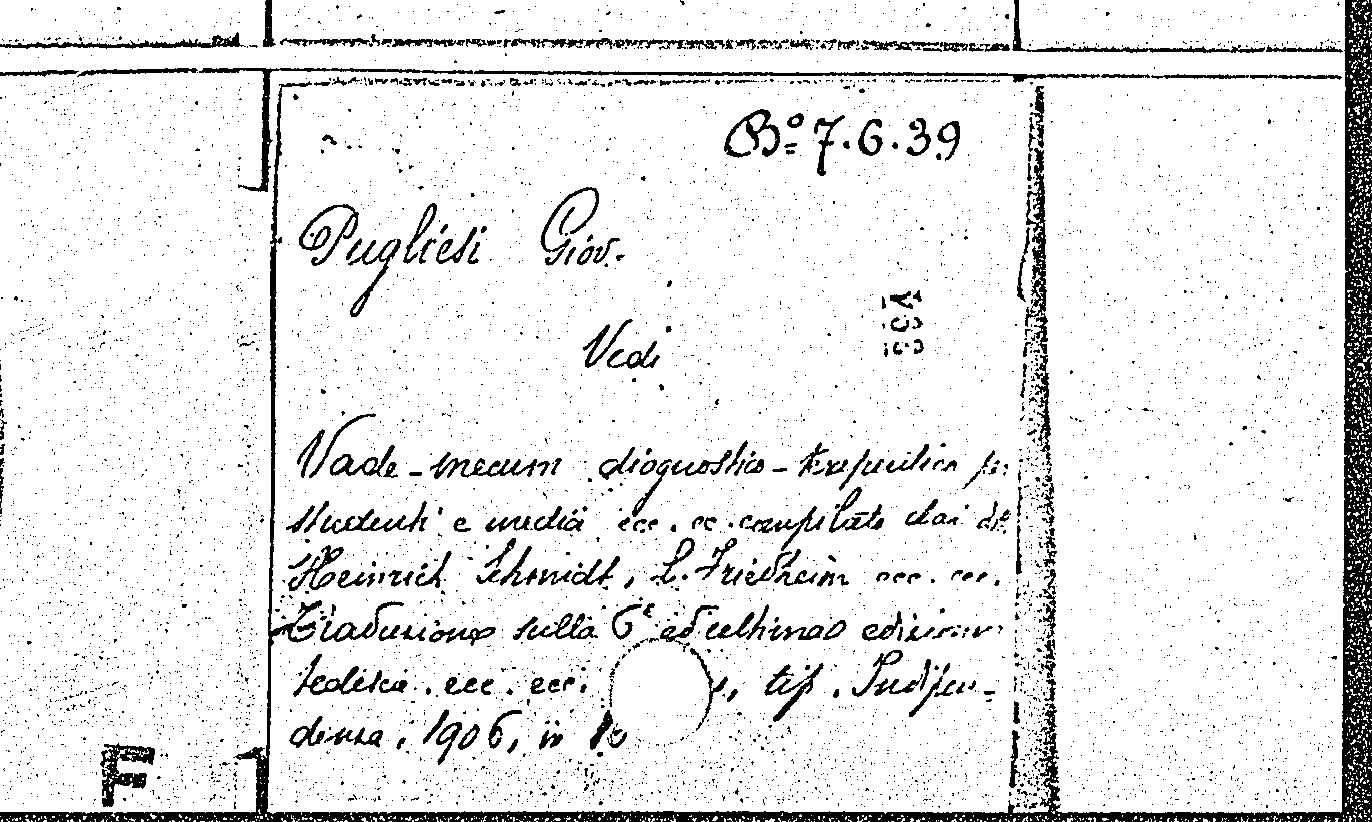 Bº 7.6.39
Pugliesi Giov.
Vedi
Vade-mecum diagnostico-terapeutico per
studenti e medici ecc. ec. compilato dai
Heinrich Schmidt, L. Friedheim ecc. ecc.
Traduzione sulla 6ª ed ultima edizione
tedesca. ecc. ecc. tip. Indipen-
denza, 1906, in
F